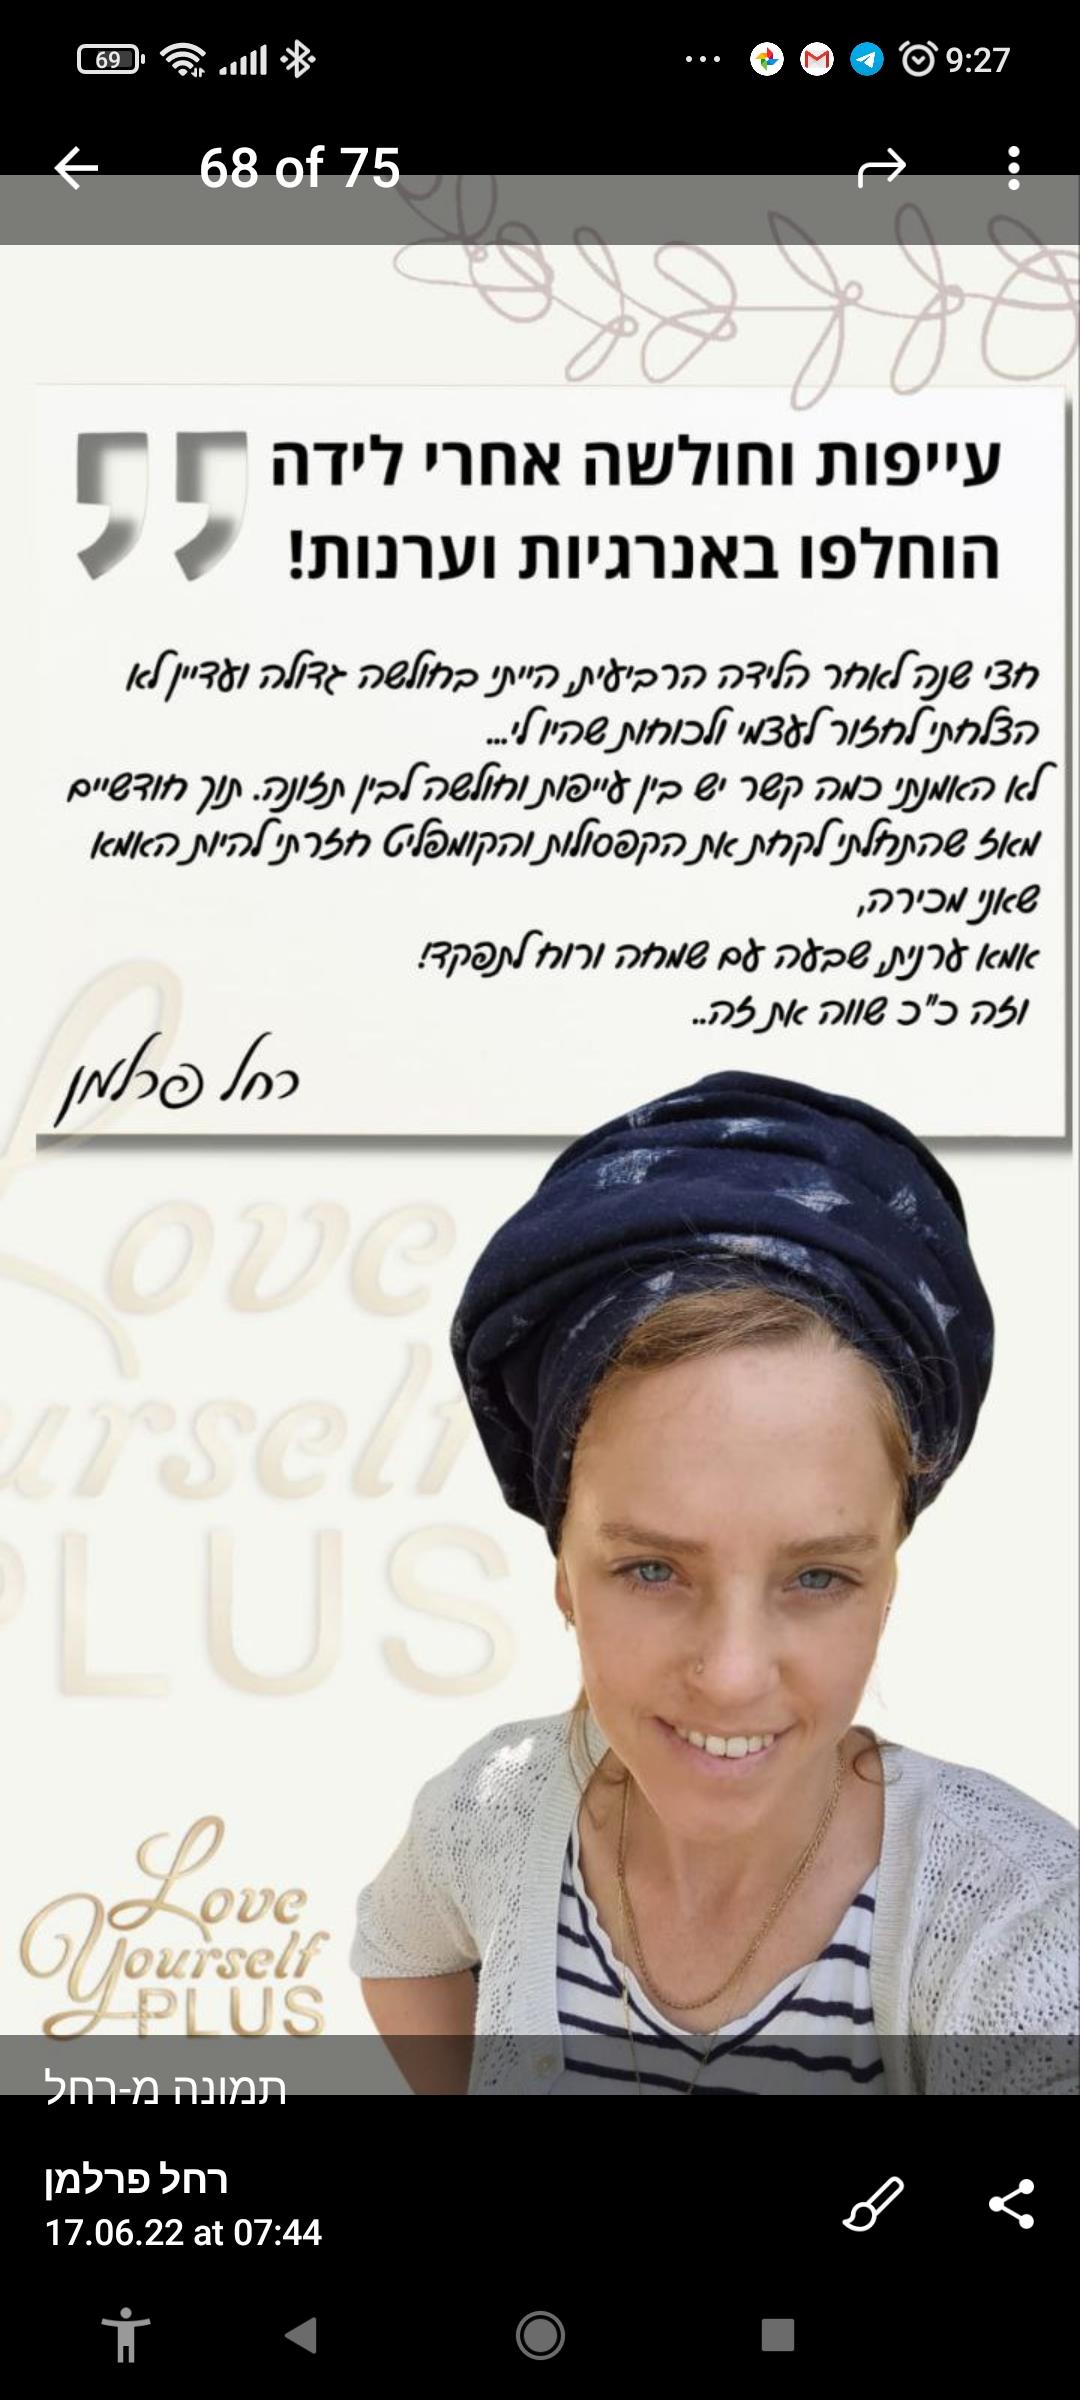 69
9:27
68 of 75
עייפות וחולשה אחרי לידה
הוחלפו באנרגיות וערנות!
חצי שנה לאחר הלידה הרביעית, הייתי בחולשה גדולה ועדיין לא
הצלחתי לחזור לעצמי ולכוחות שהיו לי...
לא האמנתי כמה קשר יש בין עייפות וחולשה לבין תזונה. תוך חודשיים
מאז שהתחלתי לקחת את הקפסולות והקומפליט חזרתי להיות האמא
שאני מכירה,
אמא ערנית, שבעה עם שמחה ורוח לתפקד!
וזה כ"כ שווה את זה..
רחל פרלמן
Love
urself
PLUS
Love
Yourself
PLUS
תמונה מ-רחל
רחל פרלמן
17.06.22 at 07:44